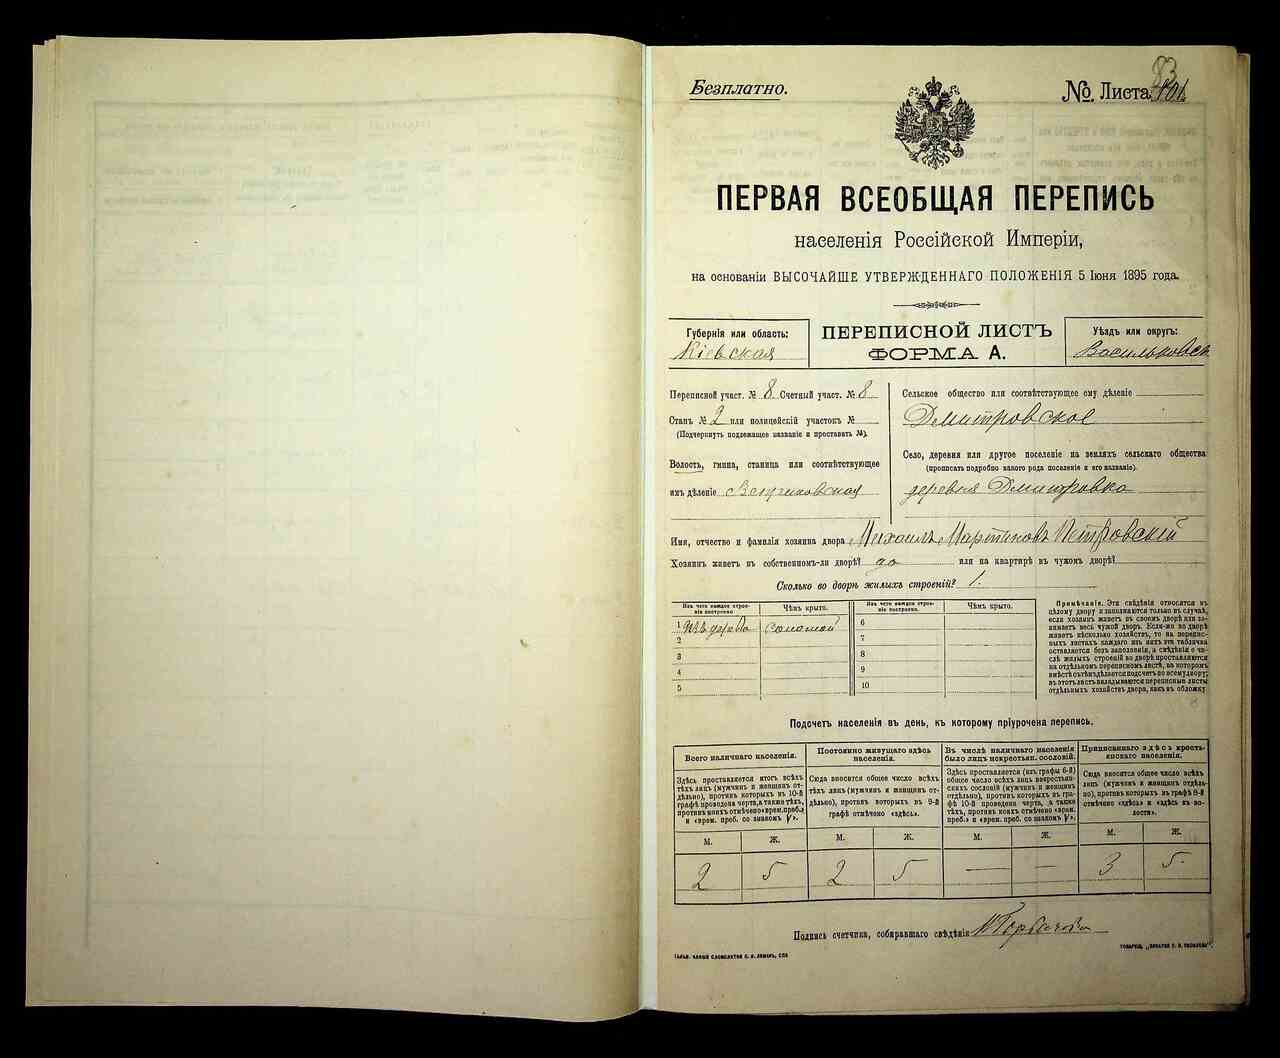 Безплатно.
№ Листа 83
ПЕРВАЯ ВСЕОБЩАЯ ПЕРЕПИСЬ
населенія Россійской Имперіи,
на основаніи ВЫСОЧАЙШЕ УТВЕРЖДЕННАГО ПОЛОЖЕНІЯ 5 Іюня 1895 года.
Губернія или область:
Кіевская
ПЕРЕПИСНОЙ ЛИСТЪ
ФОРМА А.
Уѣздъ или округъ:
Васильковск
Переписной участ. № 8 Счетный участ. № 8
Станъ № 2 или полицейскій участокъ №
(Подчеркнуть подлежащее названіе и проставить №).
Волость, гмина, станица или соотвѣтствующее
имъ дѣленіе
Сельское общество или соотвѣтствующее ему дѣленіе
Дмитровское
Село, деревня или другое поселеніе на земляхъ сельскаго общества
(прописать подробно какого рода поселеніе и его названіе).
деревня Дмитровка
Имя, отчество и фамилія хозяина двора Михаилъ Мартиновъ Петровскій
Хозяинъ живетъ въ собственномъ-ли дворѣ? да или на квартирѣ въ чужомъ дворѣ?
Сколько во дворѣ жилыхъ строеній? 1.
Изъ чего каждое строе-
ніе построено.
Чѣмъ крыто.
1 Изъ дерева соломой
2
3
4
5
Изъ чего каждое строе-
ніе построено.
Чѣмъ крыто.
6
7
8
9
10
Примѣчаніе. Эти свѣдѣнія относятся къ
цѣлому двору и заполняются только въ случаѣ,
если хозяинъ живетъ въ своемъ дворѣ или за-
нимаетъ весь чужой дворъ. Если-же во дворѣ
живетъ нѣсколько хозяйствъ, то на перепис-
ныхъ листахъ каждаго изъ нихъ эта табличка
оставляется безъ заполненія, а свѣдѣнія о чи-
слѣ жилыхъ строеній во дворѣ проставляются
на отдѣльномъ переписномъ листѣ, на которомъ
вмѣстѣ съ тѣмъ дѣлается подсчетъ по всему двору;
въ этотъ листъ вкладываются переписные листы
отдѣльныхъ хозяйствъ двора, какъ въ обложку
Подсчетъ населенія въ день, къ которому пріурочена перепись.
Всего наличнаго населенія.
Здѣсь проставляется итогъ всѣхъ
лицъ (мужчинъ и женщинъ от-
дѣльно), противъ которыхъ въ 10-й
графѣ проведена черта, а также тѣхъ,
противъ коихъ отмѣчено «врем. преб.»
и «врем. преб. со знакомъ V».
М. Ж.
2 5
Постоянно живущаго здѣсь
населенія.
Сюда вносится общее число всѣхъ
тѣхъ лицъ (мужчинъ и женщинъ от-
дѣльно), противъ которыхъ въ 9-й
графѣ отмѣчено «здѣсь».
М. Ж.
2 5
Въ числѣ наличнаго населенія
было лицъ некрестьян. сословій.
Здѣсь проставляется (изъ графы 6-й)
общее число всѣхъ лицъ некрестьян-
скихъ сословій (мужчинъ и женщинъ
отдѣльно), противъ которыхъ въ гра-
фѣ 10-й проведена черта, а также
тѣхъ, противъ коихъ отмѣчено «врем.
преб.» и «врем. преб. со знакомъ V».
М. Ж.
— —
Приписаннаго здѣсь кресть-
янскаго населенія.
Сюда вносится общее число всѣхъ
лицъ (мужчинъ и женщинъ отдѣль-
но), противъ которыхъ въ графѣ 8-й
отмѣчено «здѣсь» и «здѣсь въ во-
лости».
М. Ж.
3 5.
Подпись счетчика, собиравшаго свѣдѣнія